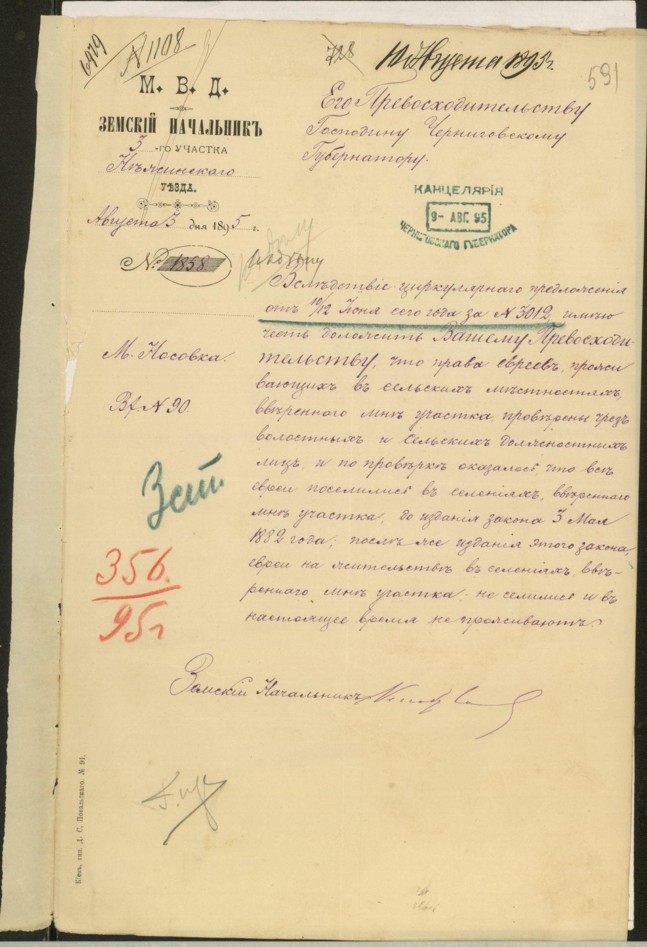 6479
№ 1108
728
10 Августа 1895 г.
591
М. В. Д.
ЗЕМСКІЙ НАЧАЛЬНИКЪ
3-го УЧАСТКА
Нѣжинскаго
УѢЗДА.
Августа 3 дня 1895 г.
№ 1858
М. Носовка.
Вх. № 90.
Его Превосходительству
Господину Черниговскому
Губернатору.
КАНЦЕЛЯРІЯ
9- АВГ. 95
ЧЕРНИГОВСКАГО ГУБЕРНАТОРА
Вслѣдствіе циркулярнаго предложенія
отъ 10/12 Іюня сего года за № 3012, имѣю
честь доложить Вашему Превосходи-
тельству, что права евреевъ, прожи
вающихъ въ сельскихъ мѣстностяхъ,
ввѣреннаго мнѣ участка, провѣрены чрезъ
волостныхъ и сельскихъ должностныхъ
лицъ, и по провѣркѣ оказалось, что всѣ
евреи поселились въ селеніяхъ, ввѣреннаго
мнѣ участка, до изданія закона 3 Мая
1882 года; послѣ же изданія этого закона
евреи на жительствѣ въ селеніяхъ, ввѣ-
реннаго мнѣ участка, не селились и въ
настоящее время не проживаютъ.
3 ст.
356.
95 г
Земскій Начальникъ
Кіевъ, тип. Д. С. Повальскаго. № 91.